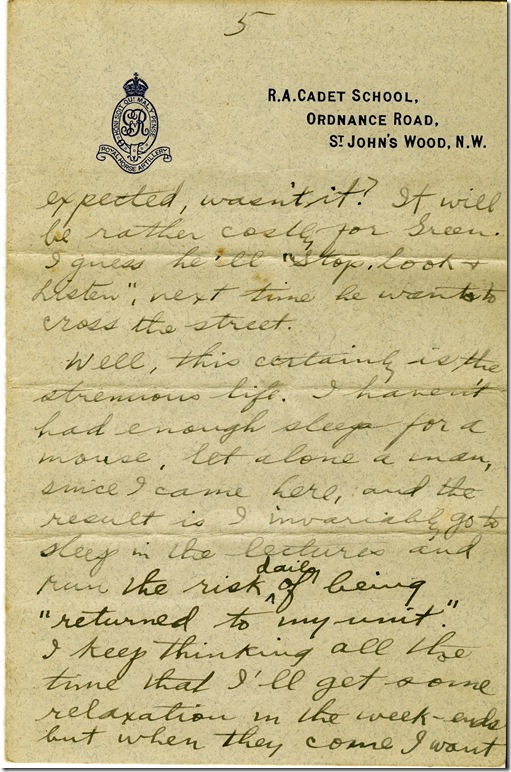 5
HONI SOIT QUI MAL Y PENSE
GR
ROYAL HORSE ARTILLERY
R.A. CADET SCHOOL,
ORDNANCE ROAD,
ST JOHN'S WOOD, N.W.
expected, wasn't it? It will
be rather costly for Green.
I guess he'll "Stop, Look &
Listen", next time he wants to
cross the street.
Well, this certainly is the
strenuous life. I haven't
had enough sleep for a
mouse, let alone a man,
since I came here, and the
result is I invariably go to
sleep in the lectures and
run the risk daily of being
"returned to my unit."
I keep thinking all the
time that I'll get some
relaxation in the week-ends
but when they come I want